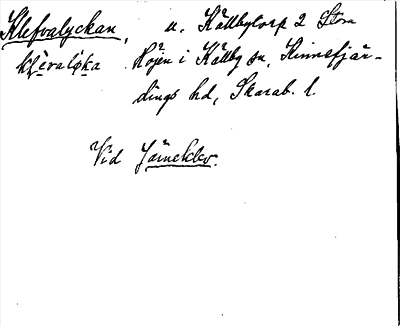 Klefvalyckan, u. Källbytorp 2 Stom
Höjen i Källby sn, Kinnefjär-
dings hd, Skarab. l.
Vid Järneklev.